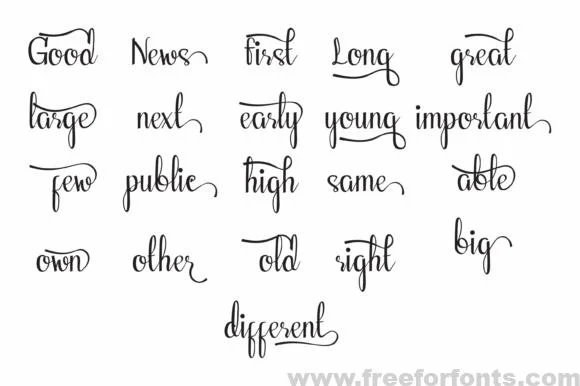 Good News first Long great
large next early young important
few public high same able
own other old right big
different
www.freeforfonts.com